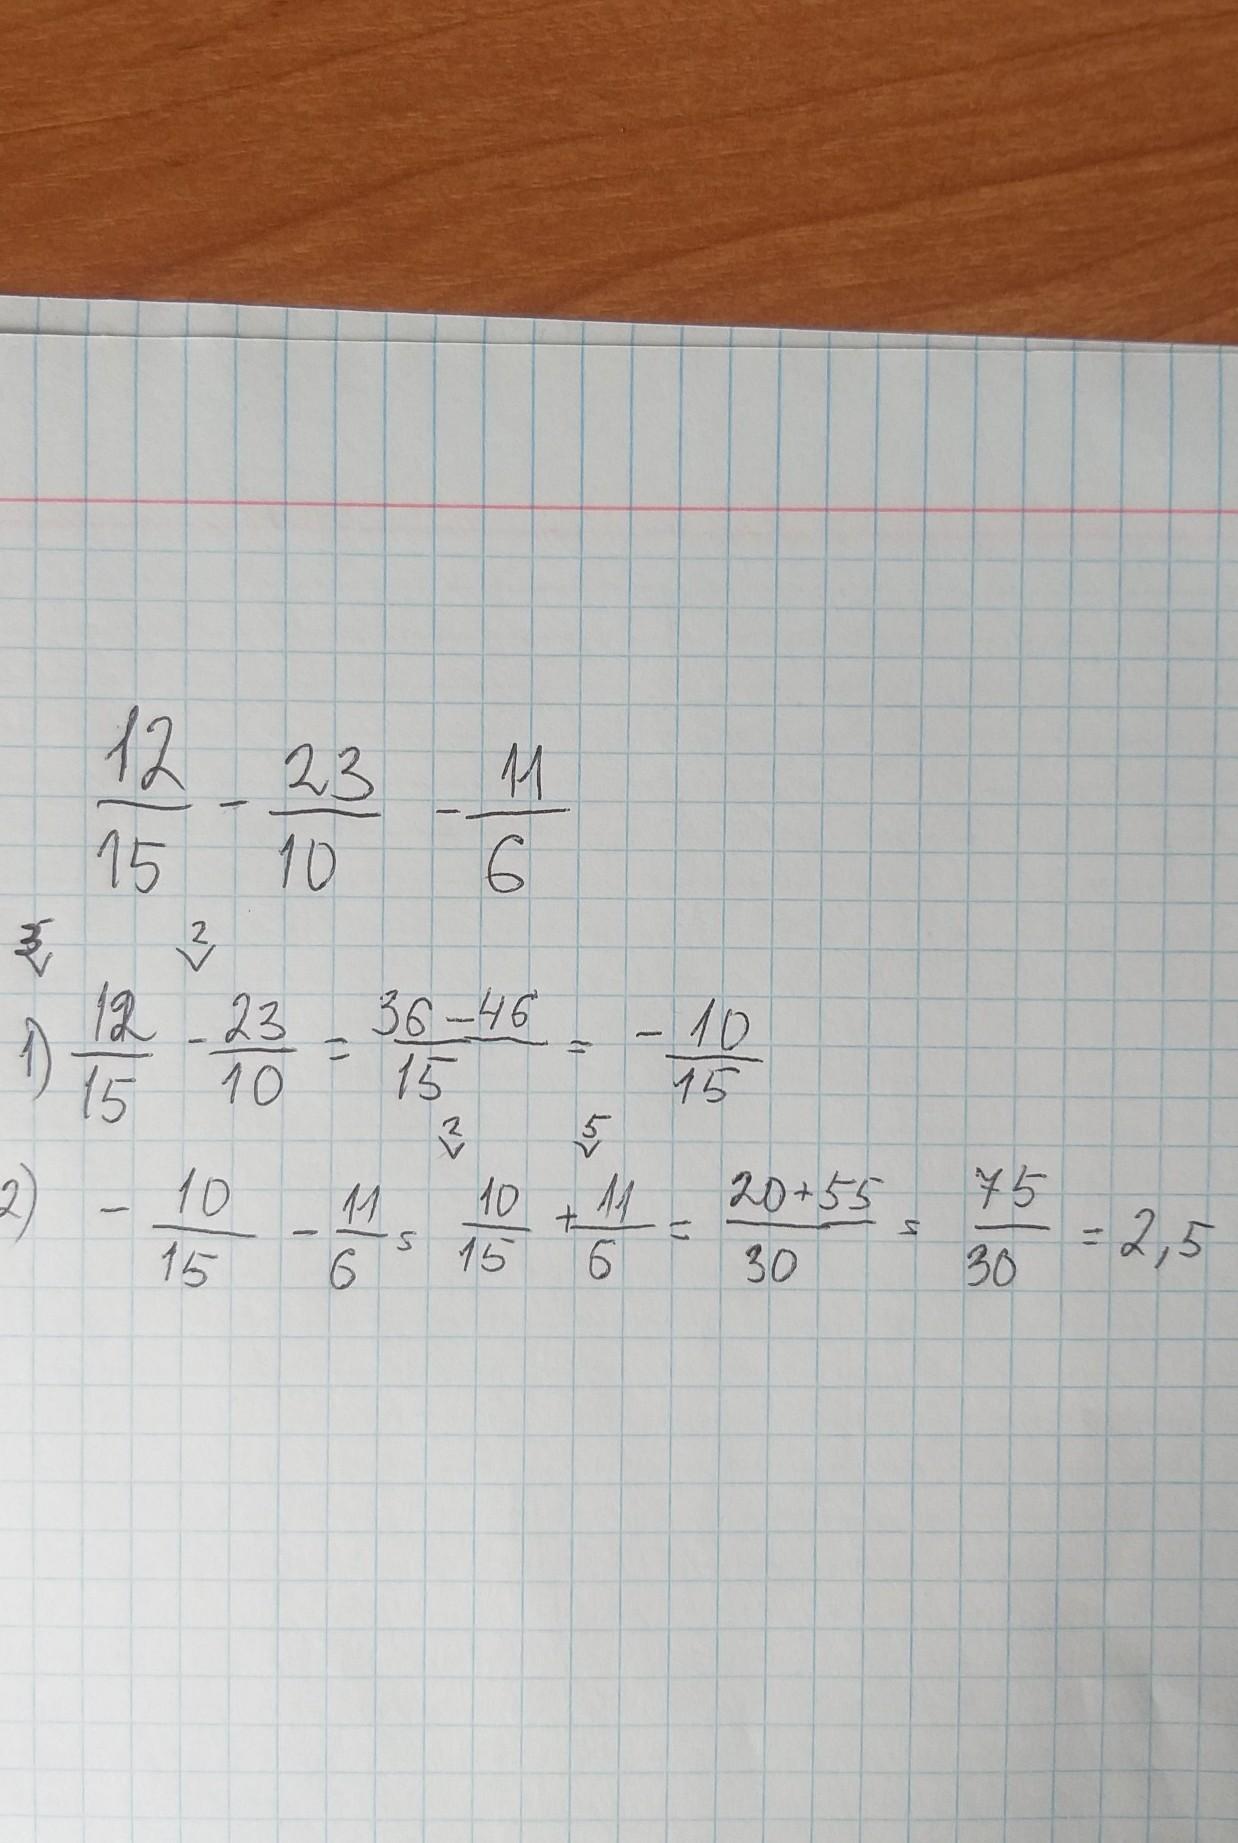 12/15 - 23/10 - 11/6
2
1) 12/15 - 23/10 = 36-46/15 = -10/15
2 5
2) -10/15 - 11/6 = 10/15 + 11/6 = 20+55/30 = 75/30 = 2,5